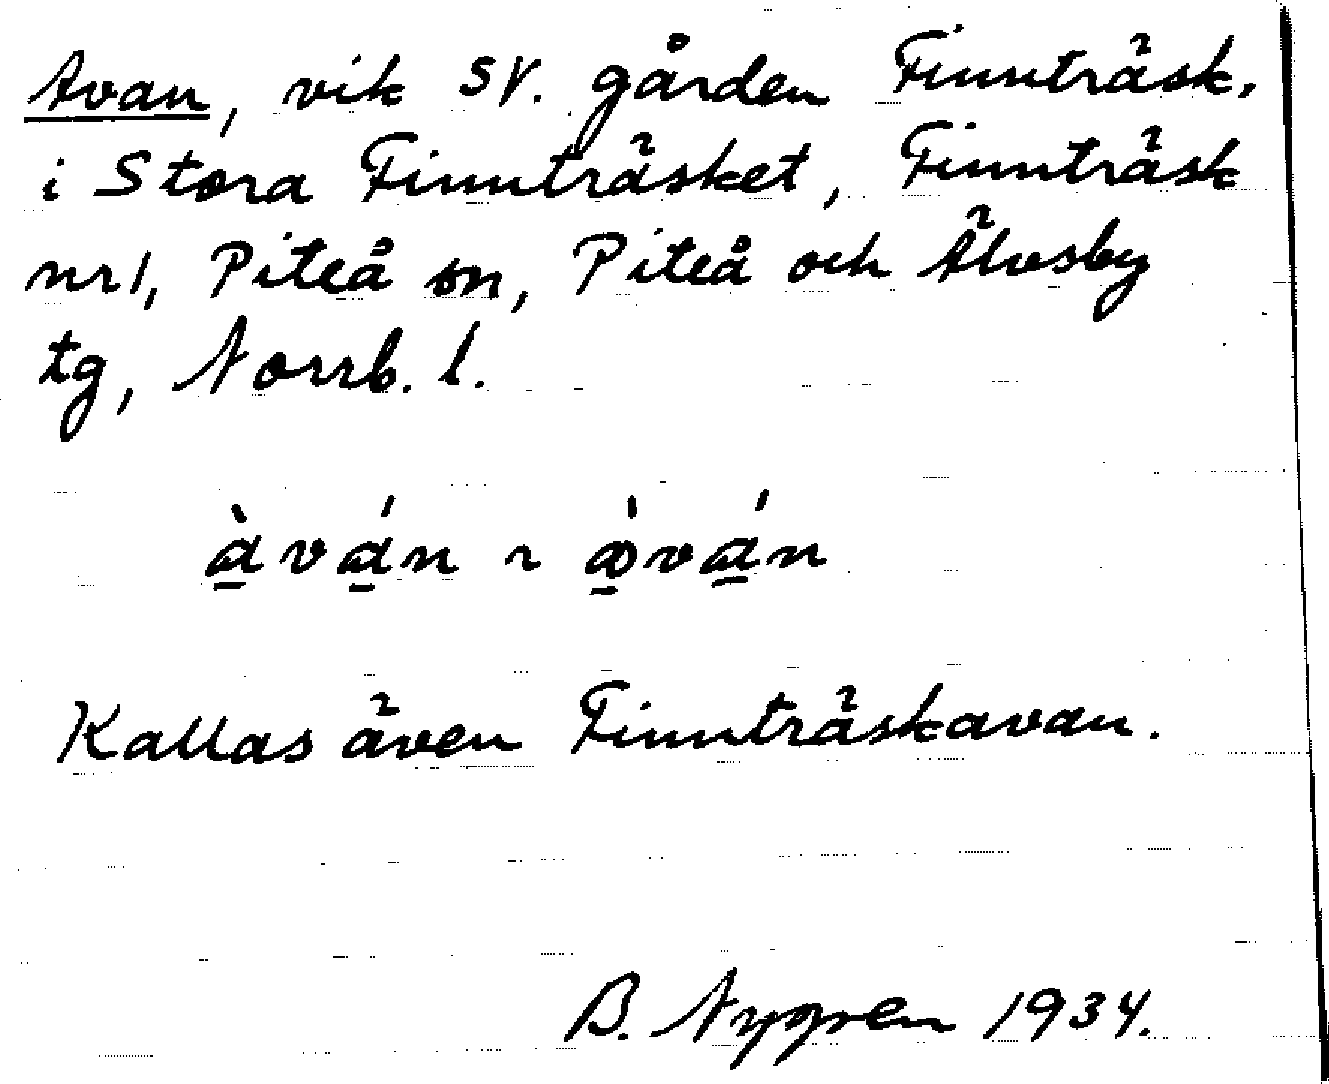 Avan, vik SV. gården Finnträsk,
i Stora Finnträsket, Finnträsk
nr 1, Piteå sn, Piteå och Älvsby
tg, Norrb. l.
à̱vá̱n ~ å̱̀vá̱n
Kallas även Finnträskavan.
B. Nygren 1934.